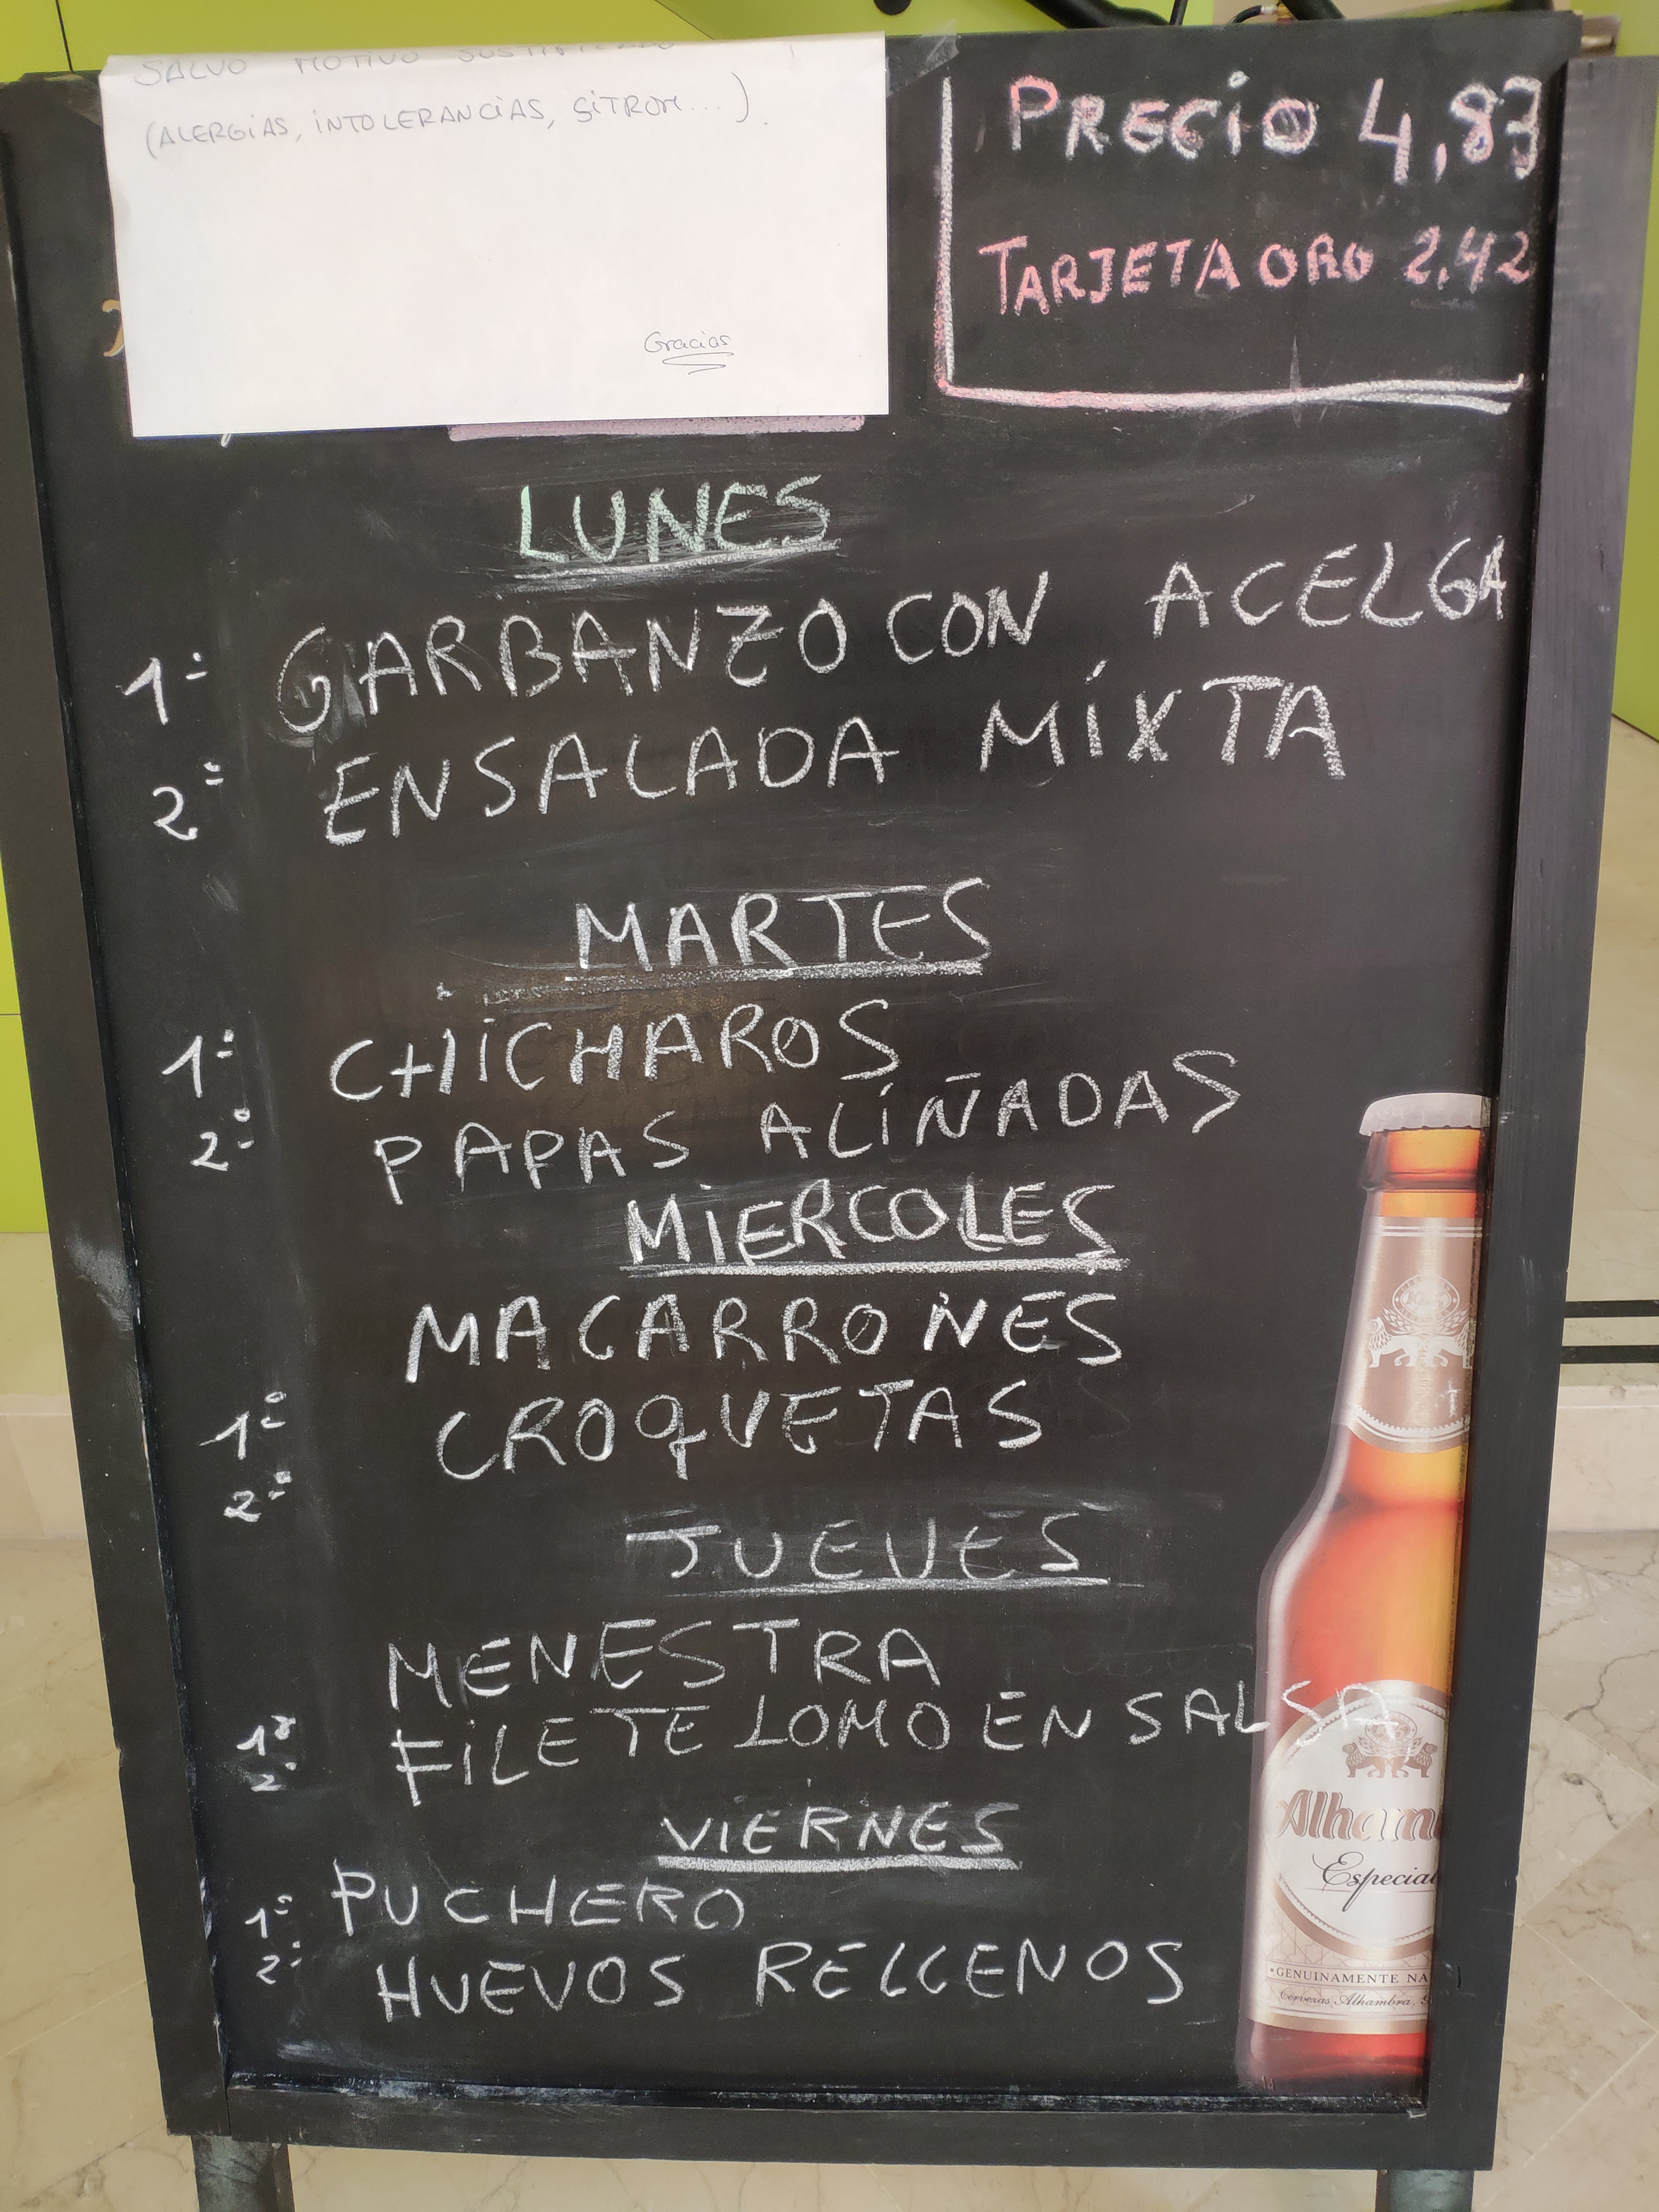 SALVO MOTIVO JUSTIFICADO
(ALERGIAS, INTOLERANCIAS, SITROM...).
Gracias
PRECIO 4,83
TARJETA ORO 2,42
LUNES
1º GARBANZO CON ACELGA
2º ENSALADA MIXTA
MARTES
1º CHICHAROS
2º PAPAS ALIÑADAS
MIERCOLES
1º MACARRONES
2º CROQUETAS
JUEVES
1º MENESTRA
2º FILETE LOMO EN SALSA
VIERNES
1º PUCHERO
2º HUEVOS RELLENOS
Alham
Especial
GENUINAMENTE NA
Cervezas Alhambra, S